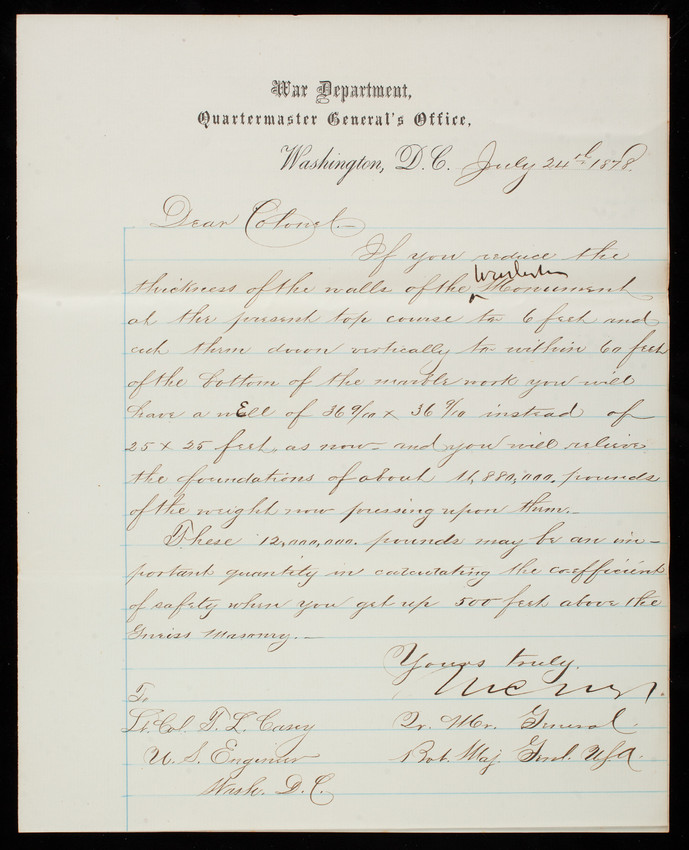 War Department,
Quartermaster General's Office,
Washington, D.C. July 24th 1878.
Dear Colonel.—
If you reduce the
thickness of the walls of the Monument
at the present top course to 6 feet and
cut them down vertically to within 60 feet
of the bottom of the marble work you will
have a wEll of 36 9/10 x 36 9/10 instead of
25 x 25 feet, as now — and you will relieve
the foundations of about 11,880,000. pounds
of the weight now pressing upon them.—
These 12,000,000. pounds may be an im—
portant quantity in calculating the coefficient
of safety when you get up 500 feet above the
Gneiss Masonry.—
Yours truly.
To
Lt. Col. T. L. Casey
Qr. Mr. General.
U. S. Engineer
Bvt. Maj. Genl. USA.
Wash. D. C.